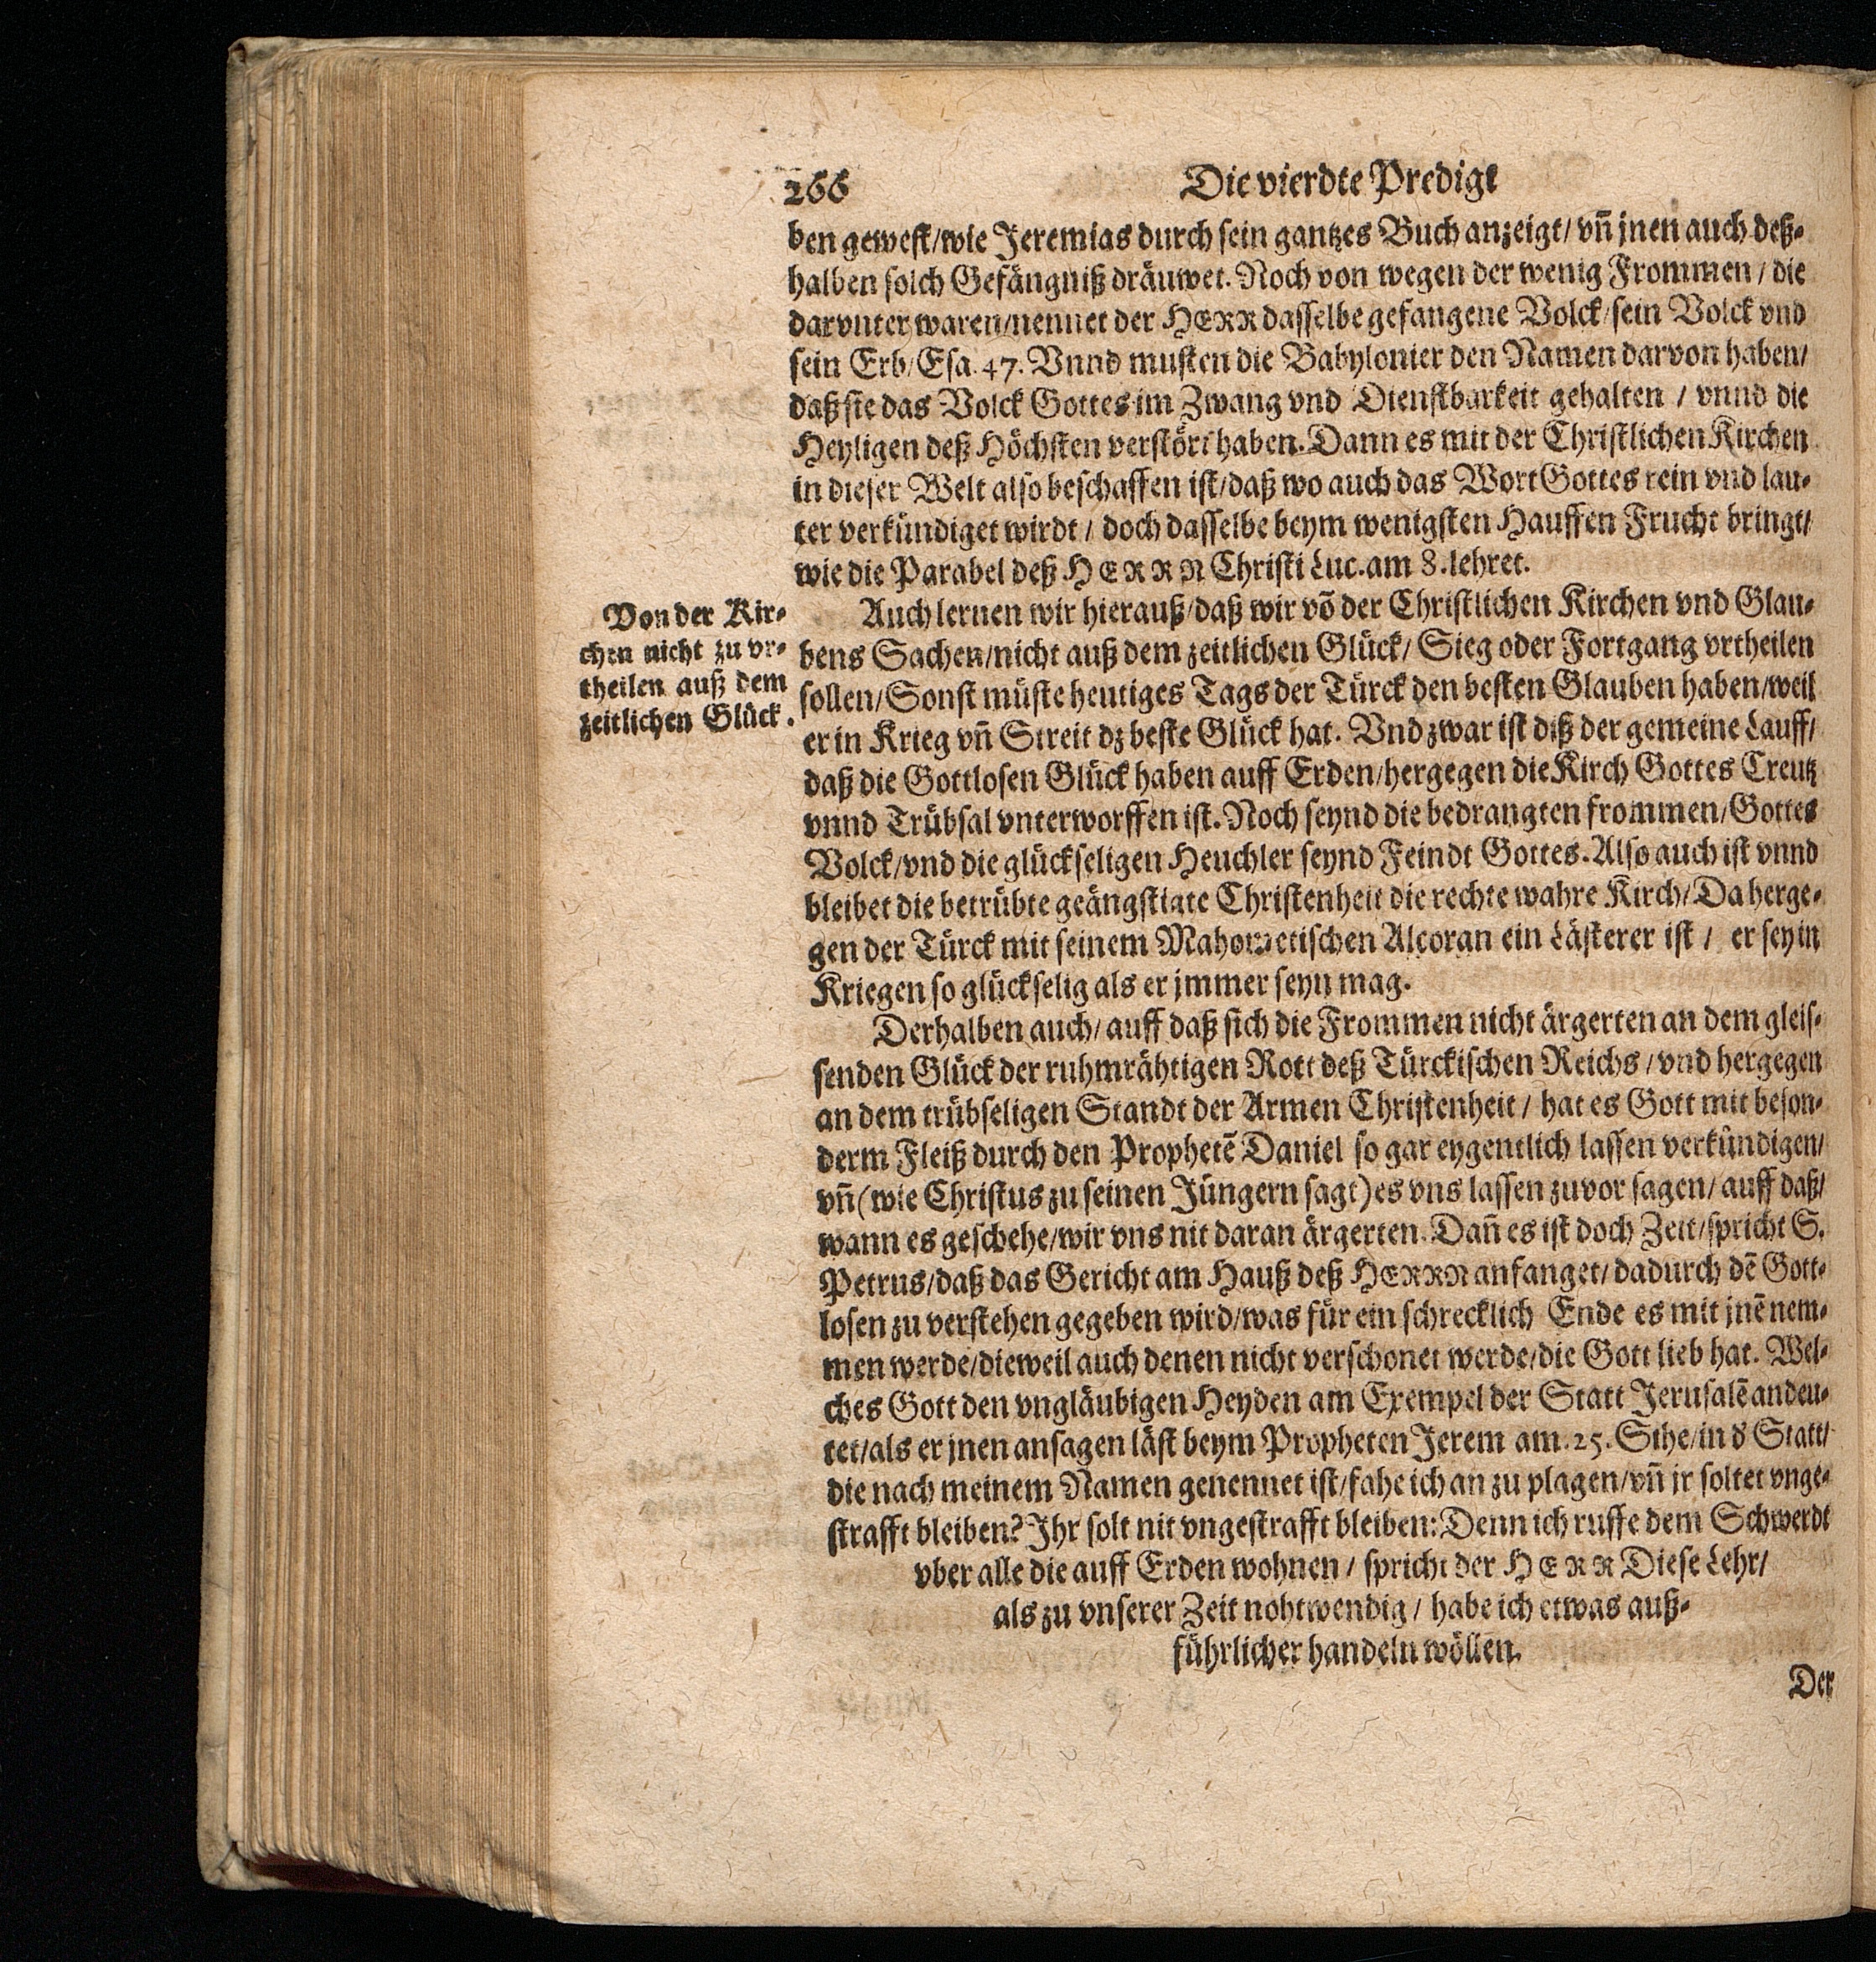 266 Die vierdte Predigt
ben gewest/wie Jeremias durch sein gantzes Buch anzeigt/ vn̄ jnen auch deß-
halben solch Gefängniß dräuwet. Noch von wegen der wenig Frommen / die
darvnter waren/nennet der HERR dasselbe gefangene Volck/sein Volck vnd
sein Erb/Esa. 47. Vnnd musten die Babylonier den Namen darvon haben/
daß sie das Volck Gottes im Zwang vnd Dienstbarkeit gehalten / vnnd die
Heyligen deß Höchsten verstört haben. Dann es mit der Christlichen Kirchen
in dieser Welt also beschaffen ist/daß wo auch das Wort Gottes rein vnd lau-
ter verkündiget wirdt / doch dasselbe beym wenigsten Hauffen Frucht bringt/
wie die Parabel deß HERRN Christi Luc. am 8. lehret.
Von der Kir-
chen nicht zu vr-
theilen auß dem
zeitlichen Glück.
Auch lernen wir hierauß/daß wir võ der Christlichen Kirchen vnd Glau-
bens Sachen/nicht auß dem zeitlichen Glück/ Sieg oder Fortgang vrtheilen
sollen/Sonst müste heutiges Tags der Türck den besten Glauben haben/weil
er in Krieg vn̄ Streit dz beste Glück hat. Vnd zwar ist diß der gemeine Lauff/
daß die Gottlosen Glück haben auff Erden/hergegen die Kirch Gottes Creutz
vnnd Trübsal vnterworffen ist. Noch seynd die bedrangten frommen/Gottes
Volck/vnd die glückseligen Heuchler seynd Feindt Gottes. Also auch ist vnnd
bleibet die betrübte geängstigte Christenheit die rechte wahre Kirch/Da herge-
gen der Türck mit seinem Mahometischen Alcoran ein Lästerer ist / er sey in
Kriegen so glückselig als er jmmer seyn mag.
Derhalben auch/ auff daß sich die Frommen nicht ärgerten an dem gleis-
senden Glück der ruhmrähtigen Rott deß Türckischen Reichs / vnd hergegen
an dem trübseligen Standt der Armen Christenheit / hat es Gott mit beson-
derm Fleiß durch den Prophetẽ Daniel so gar eygentlich lassen verkündigen/
vn̄ (wie Christus zu seinen Jüngern sagt) es vns lassen zuvor sagen/ auff daß/
wann es geschehe/wir vns nit daran ärgerten. Dan̄ es ist doch Zeit/spricht S.
Petrus/daß das Gericht am Hauß deß HERRN anfanget/ dadurch dẽ Gott-
losen zu verstehen gegeben wird/was für ein schrecklich Ende es mit jnẽ nem-
men werde/dieweil auch denen nicht verschonet werde/die Gott lieb hat. Wel-
ches Gott den vngläubigen Heyden am Exempel der Statt Jerusalẽ andeu-
tet/als er jnen ansagen läst beym Propheten Jerem am. 25. Sihe/in d' Statt/
die nach meinem Namen genennet ist/fahe ich an zu plagen/vn̄ jr soltet vnge-
strafft bleiben? Ihr solt nit vngestrafft bleiben: Denn ich ruffe dem Schwerdt
vber alle die auff Erden wohnen / spricht der HERR Diese Lehr/
als zu vnserer Zeit nohtwendig / habe ich etwas auß-
führlicher handeln wöllen.
Der